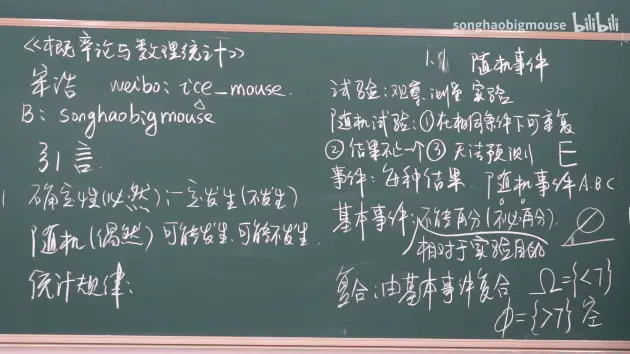 songhaobigmouse bilibili
《概率论与数理统计》
宋浩 weibo: ice_mouse.
B: songhaobigmouse
引言
确定性(必然):一定发生(不发生)
随机(偶然) 可能发生、可能不发生.
统计规律:
1.1 随机事件
试验:观察.测量 实验
随机试验:①在相同条件下可重复
②结果不止一个③无法预测 E
事件:每种结果. 随机事件A.B.C.
基本事件:不能再分(不必再分).
相对于实验目的
复合:由基本事件复合. Ω={<7}
φ={>7} 空